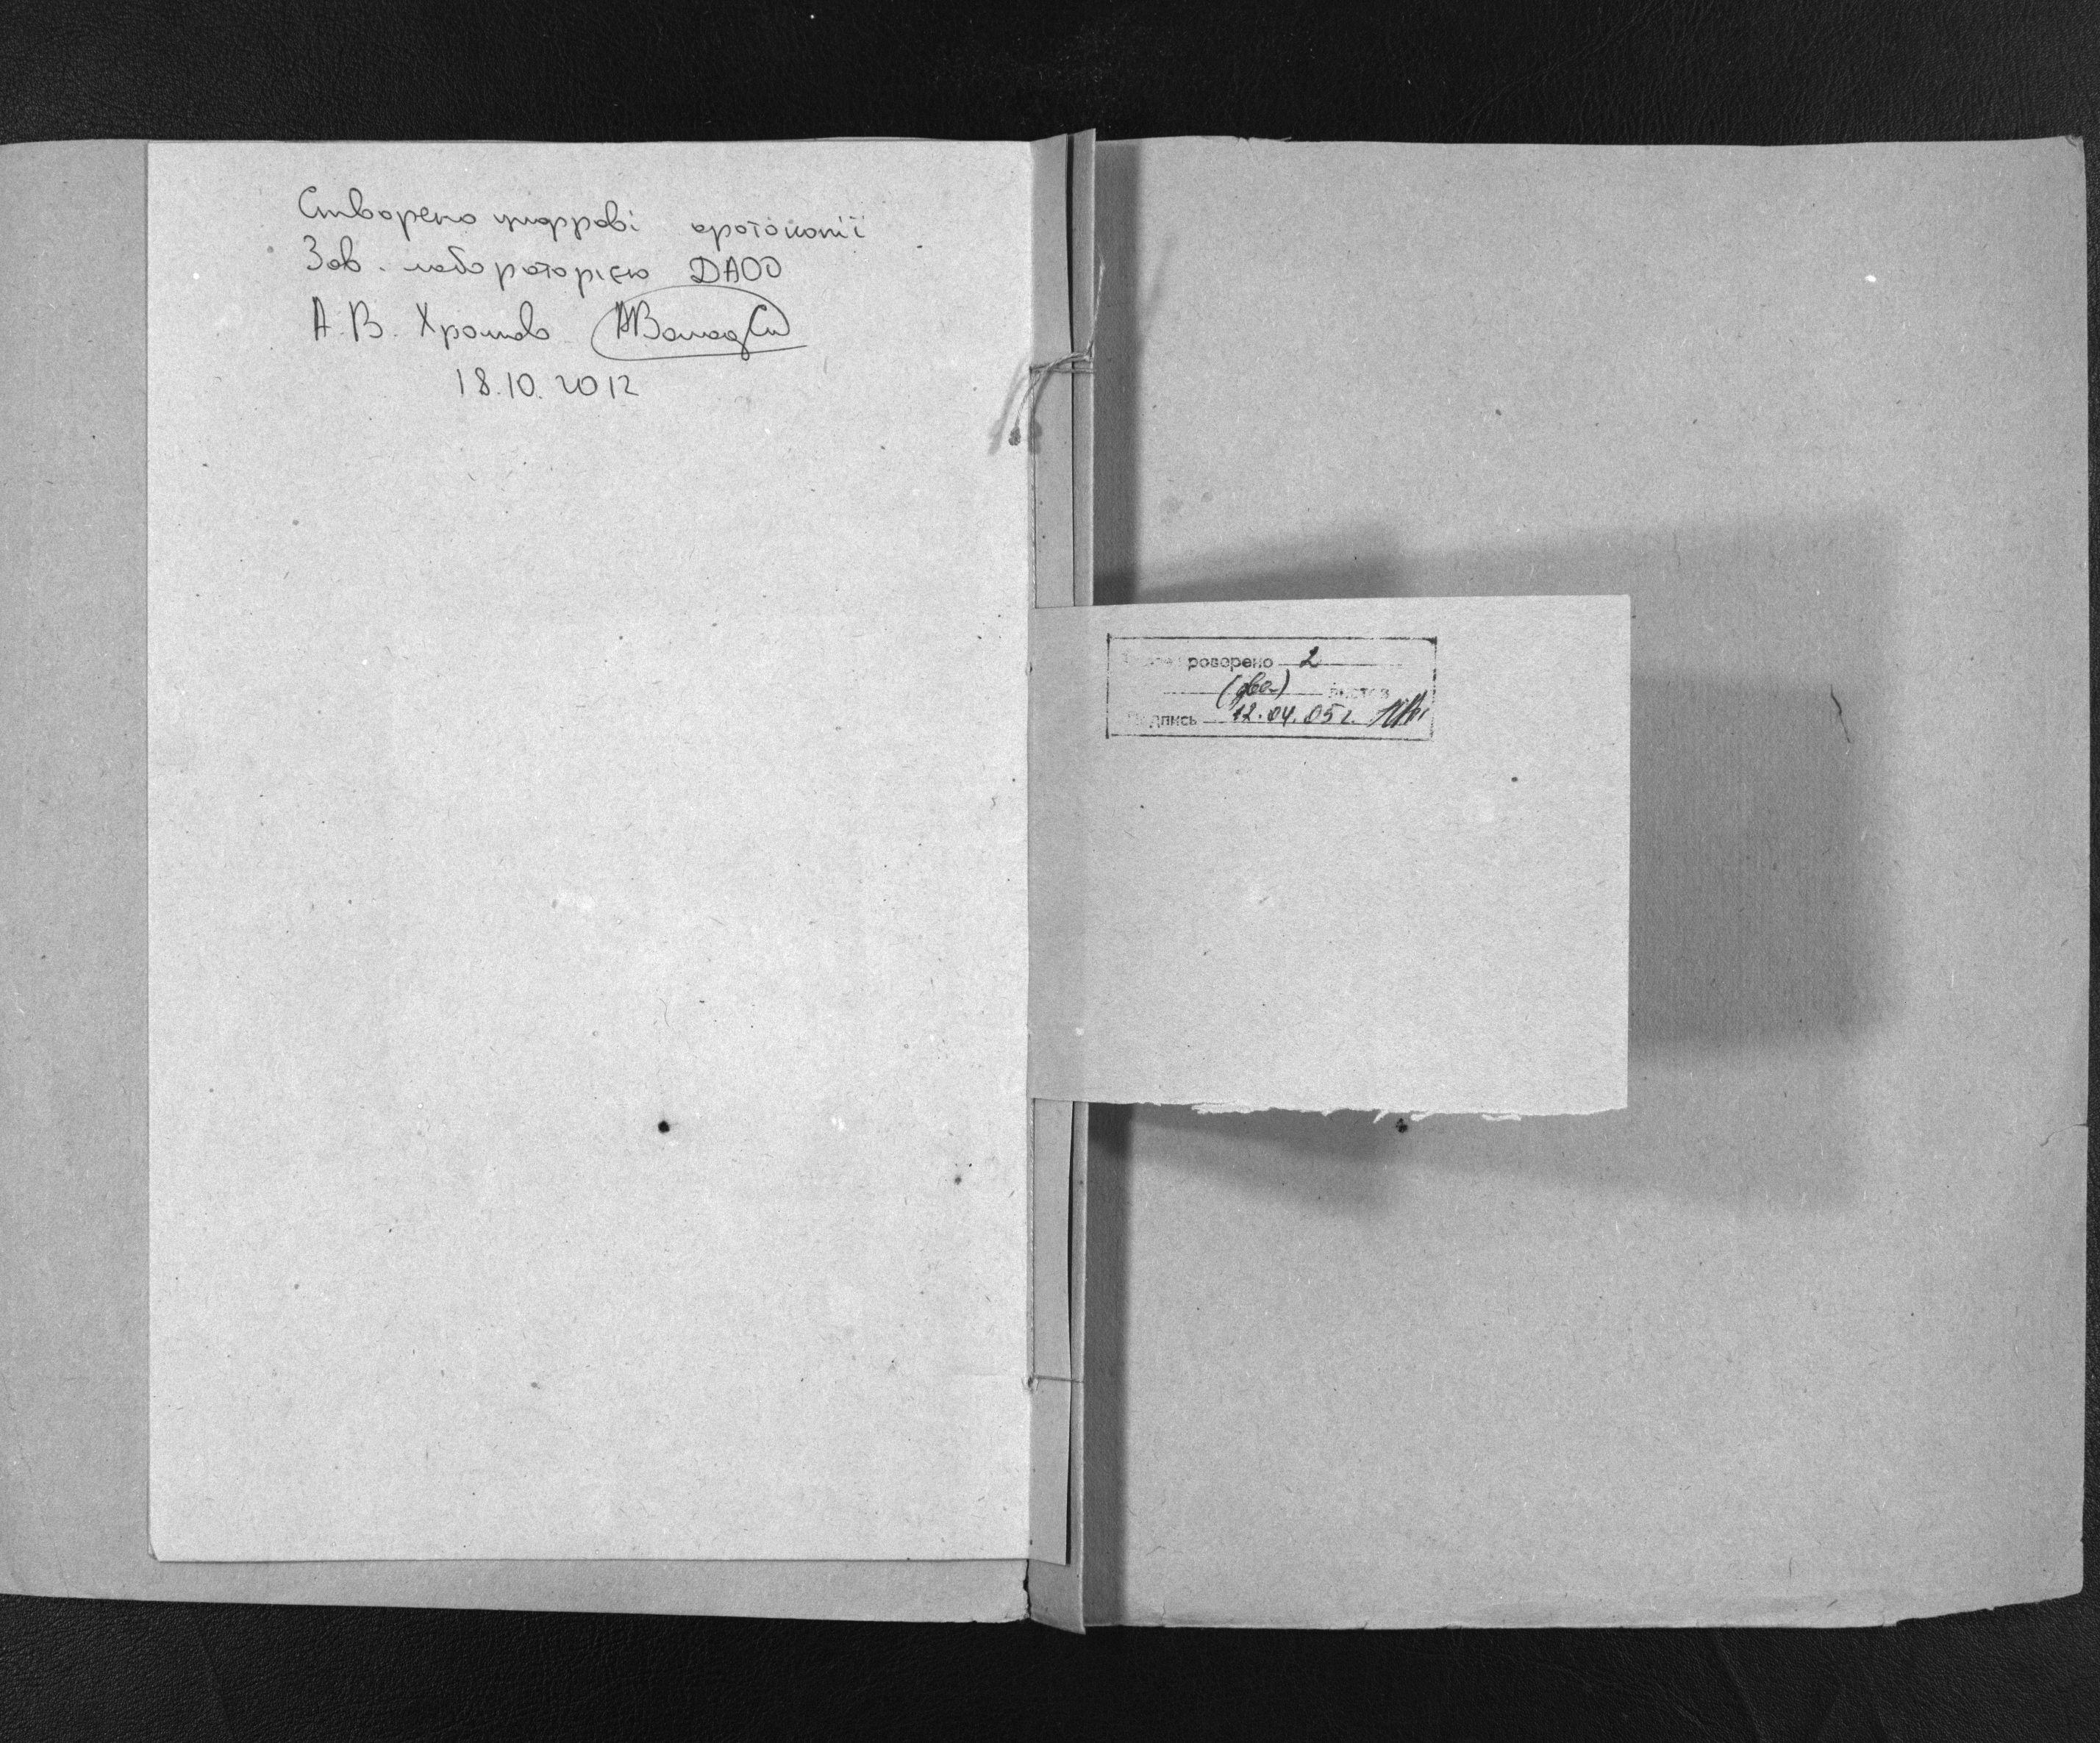 Створено цифрові фотокопії
Зав. лабораторією ДАОО
А.В. Хромов
18.10.2012
роверено 2
(два) листов
Подпись 12.04.05 г.